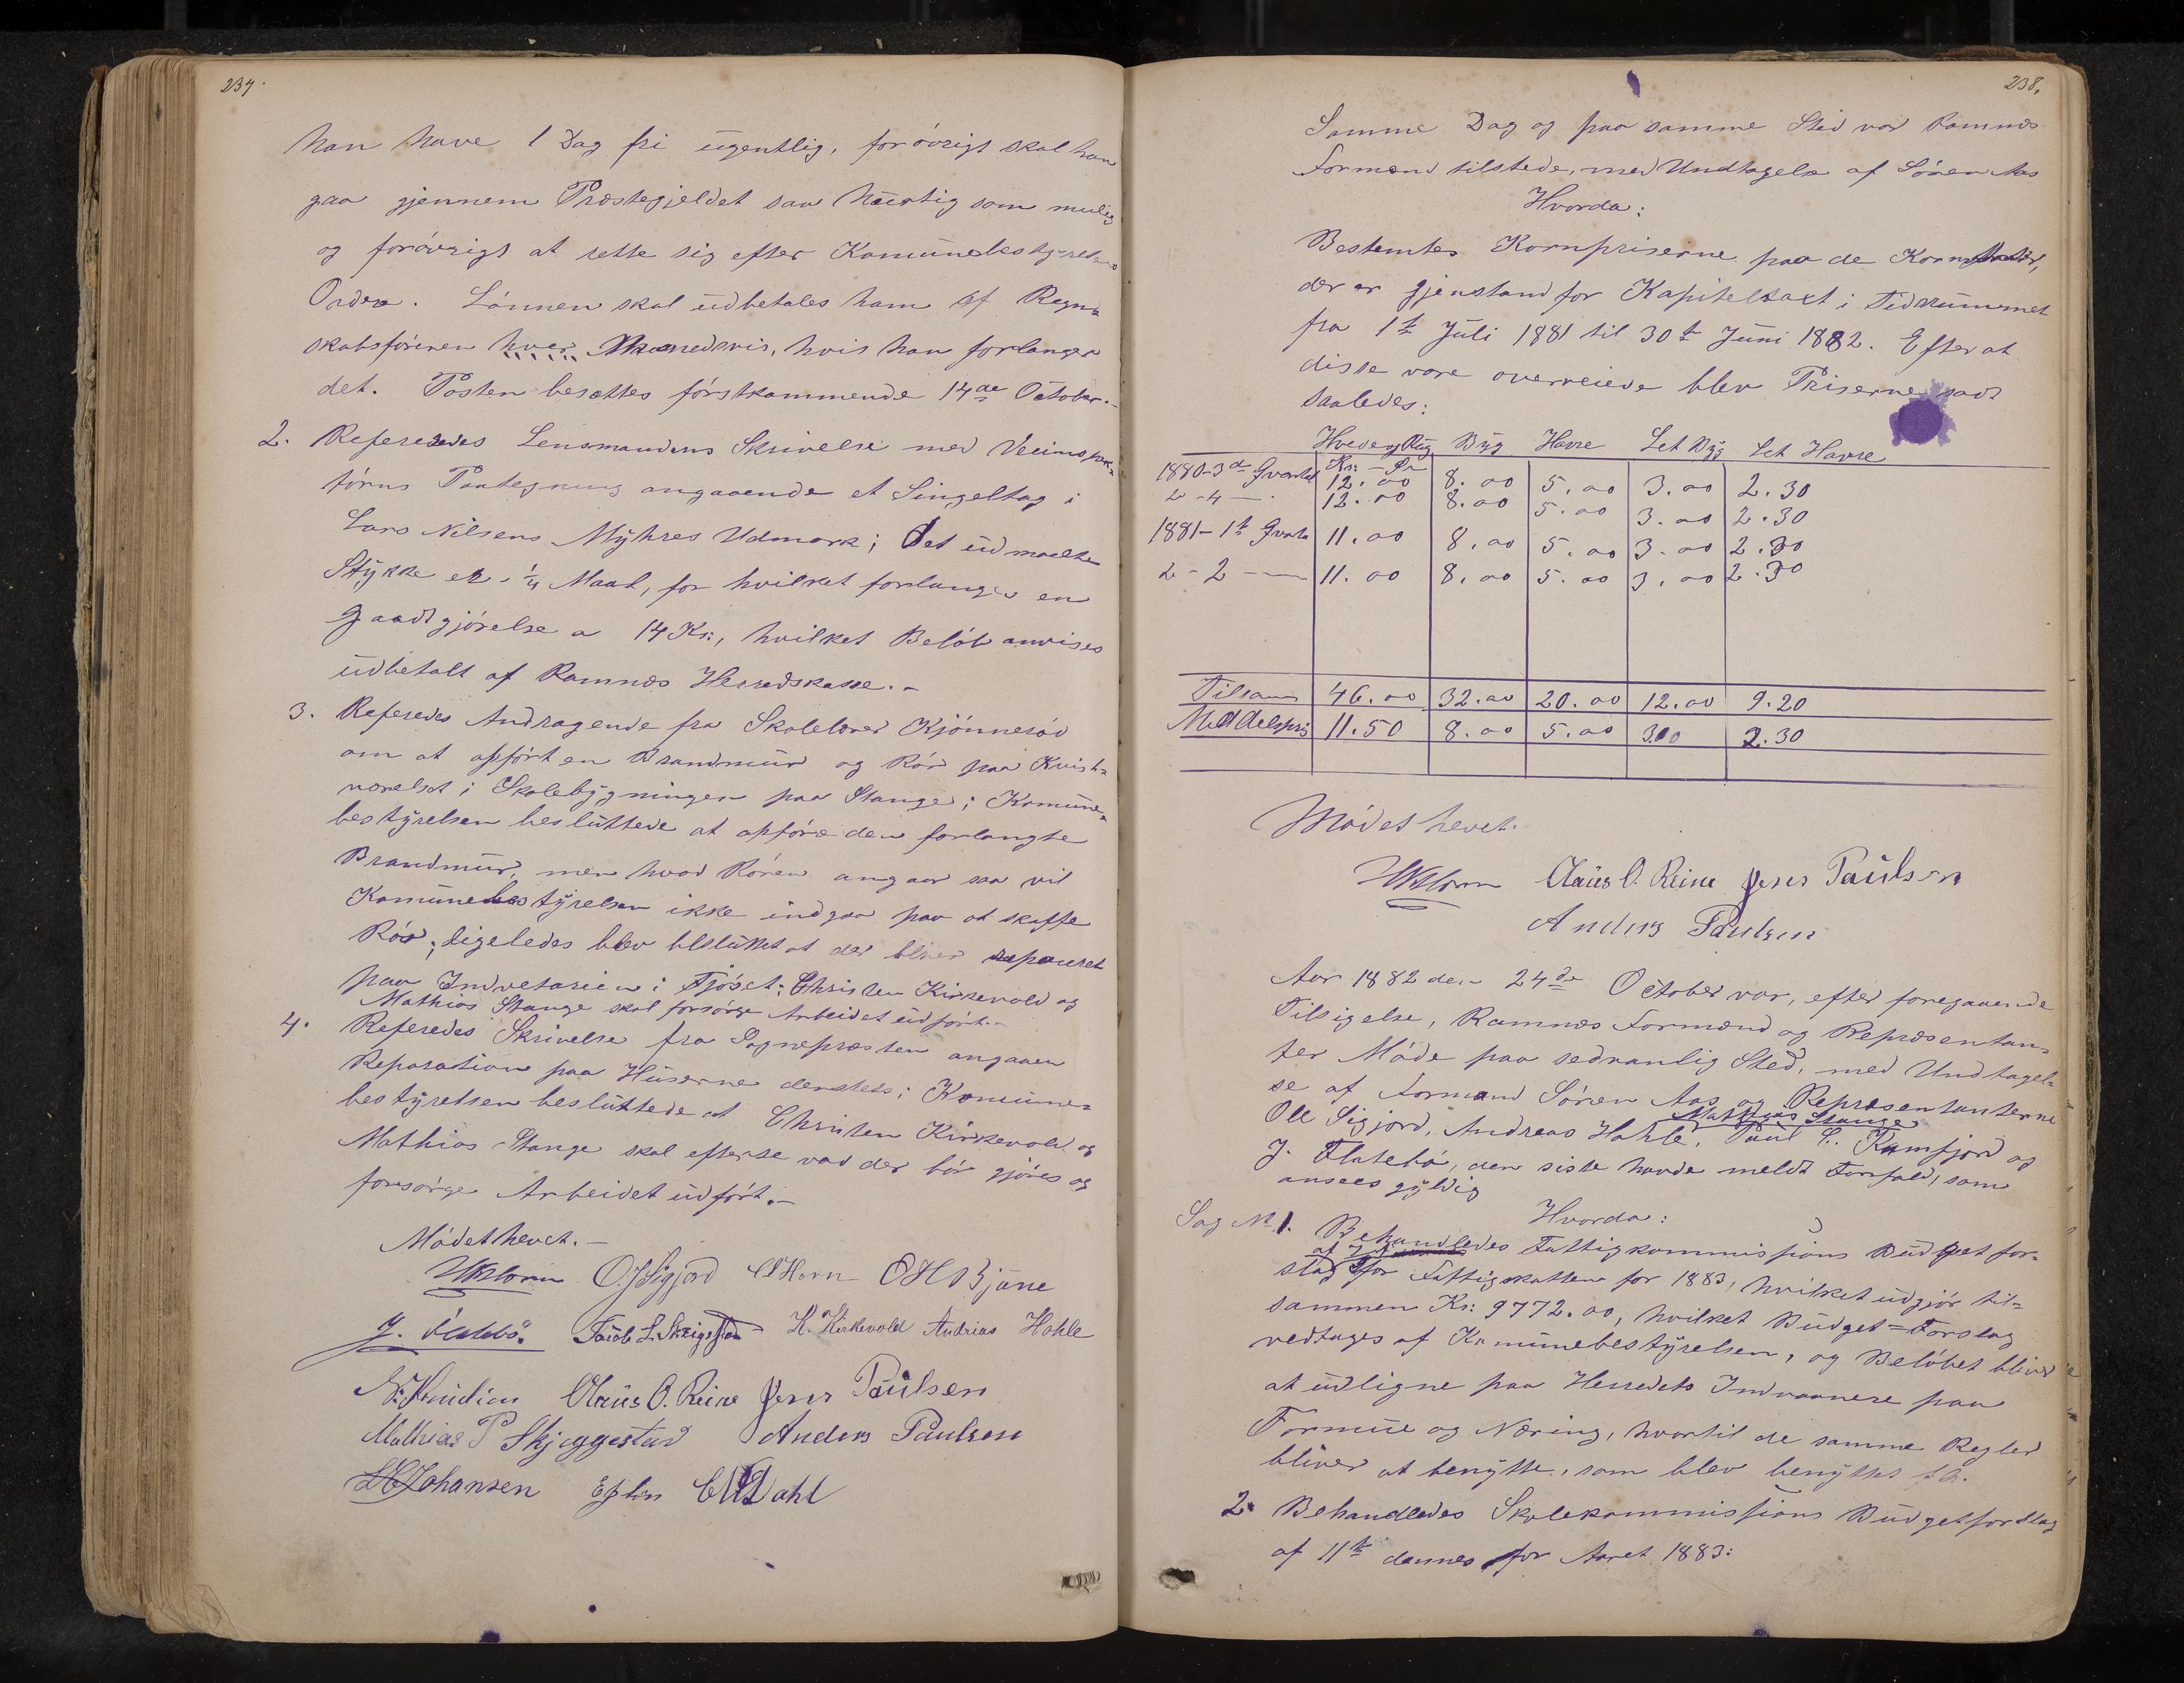 237.
han have 1 Dag fri ugentlig, forøvrigt skal han
gaa gjennem Præstegjeldet saa hurtig som mulig
og forøvrigt at rette sig efter Komunebestyrelsens
Ordre. Lønnen skal udbetales ham af Regn=
skabsføreren hver Maanedsvis, hvis han forlanger
det. Posten besættes førstkommende 14de October.-
2. Refereredes Lensmandens Skrivelse med Veiinspek=
tørens Paategning angaaende et Singeltag i
Lars Nilsens Myhres Udmark; Det udmaalte
Stykke er 1/4 Maal, for hvilket forlanges en
Godtgjørelse a 14 Kr:, hvilket Beløb anvises
udbetalt af Ramnæs Herredskasse.-
3. Referedes Andragende fra Skolelærer Kjønnerød
om at opført en Brandmur og Rør paa Kvist=
værelset i Skolebygningen paa Stange; Komune=
bestyrelsen besluttede at opføre den forlangte
Brandmur, men hvad Røren angaar saa vil
Komunebestyrelsen ikke indgaa paa at skaffe
Rør; ligeledes blev besluttet at der bliver repareret
paa Indvetarien i Fjøset; Christen Kirkevold og
Mathias Stange skal forsørge Arbeidet udført.-
4. Referedes Skrivelse fra Sognepræsten angaaen
Reparation paa Huserne dersteds; Komune=
bestyrelsen besluttede at Christen Kirkevold og
Mathias Stange skal efterse vad der bør gjøres og
forsørge Arbeidet udført.-
Mødet hevet.-
HKHorn O.J.Sigjord Horn OHBjune
J. Flatebø. Jacob L. H. Kirkevold Andrias Hohle
Claus O. Reine Jens Paulsen
Mathias P Skjeggestad Anders Paulsen
Johansen Dahl
238.
Samme Dag og paa samme Sted var Ramnæs
Formænd tilstede, med Undtagelse af Søren Aas
Hvorda:
Bestemtes Kornpriserne paa de Kornsorter,
der er gjenstand for Kapiteltaxt i Tidsrummet
fra 1te Juli 1881 til 30te Juni 1882. Efter at
disse vare overveiede blev Priserne sadt
saaledes:
Hvede og Rug Byg Havre Let Byg Let Havre
Kr: - Ør
1880-3de Qvartal 12.00 8.00 5.00 3.00 2.30
" -4 - 12.00 8.00 5.00 3.00 2.30
1881-1te Qvarta 11.00 8.00 5.00 3.00 2.30
" - 2 - 11.00 8.00 5.00 3.00 2.30
Tilsam 46.00 32.00 20.00 12.00 9.20
Middelspris 11.50 8.00 5.00 3.00 2.30
Mødet hevet.
HKHorn Claus O. Reine Jens Paulsen
Anders Paulsen
Aar 1882 den 24de October var, efter foregaaende
Tilsigelse, Ramnæs Formænd og Repræsentan=
ter Møde paa sedvanlig Sted, med Undtagel=
se af Formand Søren Aas og Repræsentanterne
Mathias Stange
Ole Sigjord, Andreas Hohle, Paul C. Ramfjord og
J. Flatebø, den siste havde meldt Forfald, som
ansees gyldig
Hvorda:
Sag No 1. Behandledes Fattigkommissions Budget for=
slag for Fattigskatten for 1883, hvilket udgjør til=
sammen Kr: 9772.00, hvilket Budget=Forslag
vedtages af Komunebestyrelsen, og Beløbet bliver
at udligne paa Herredets Indvaanere paa
Formue og Næring, hvortil de samme Regler
bliver at benytte, som blev benyttet
2. Behandledes Skolekommissions Budgetforslag
af 11te dennes for Aaret 1883: